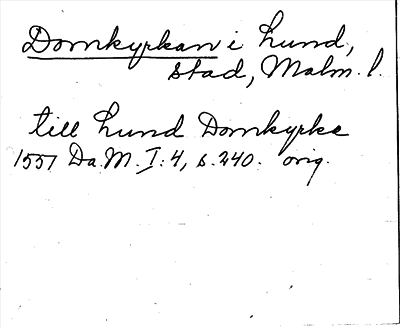 Domkyrkan i Lund,
stad, Malm. l.
till Lund Domkyrke
1557 Da. M. I: 4, s. 240. orig.